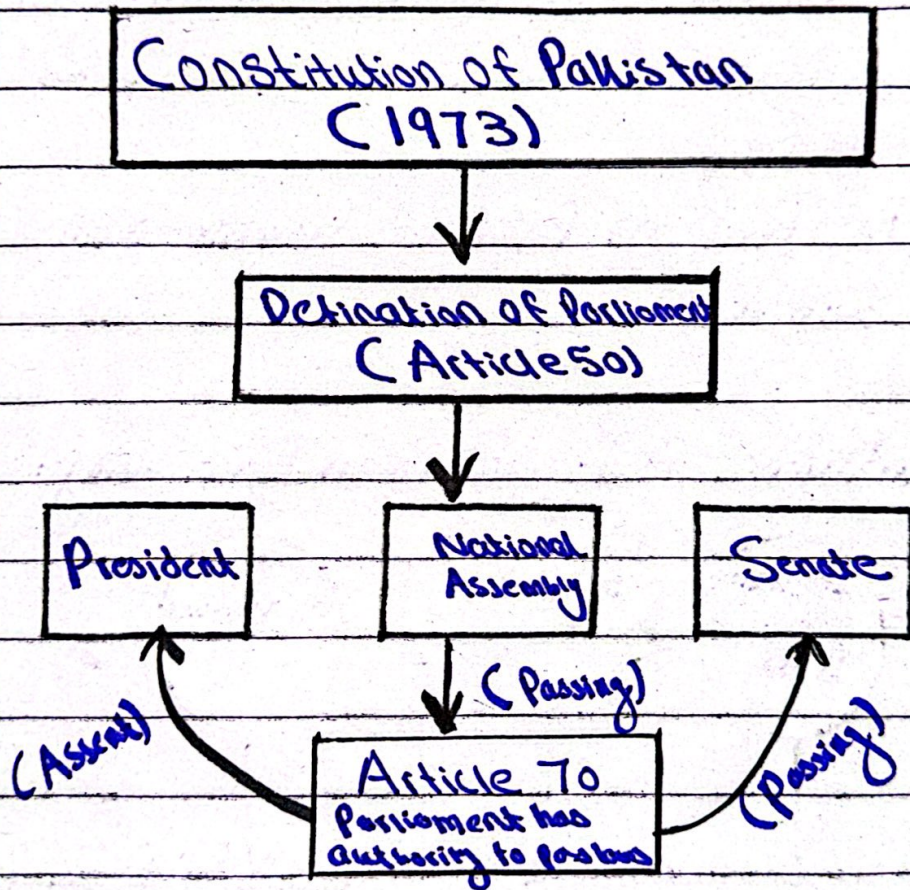 Constitution of Pakistan
(1973)
Defination of Parlioment
(Article 50)
President
National
Assembly
Senate
(Assent)
(Passing)
(Passing)
Article 70
Parlioment has
authority to pass laws